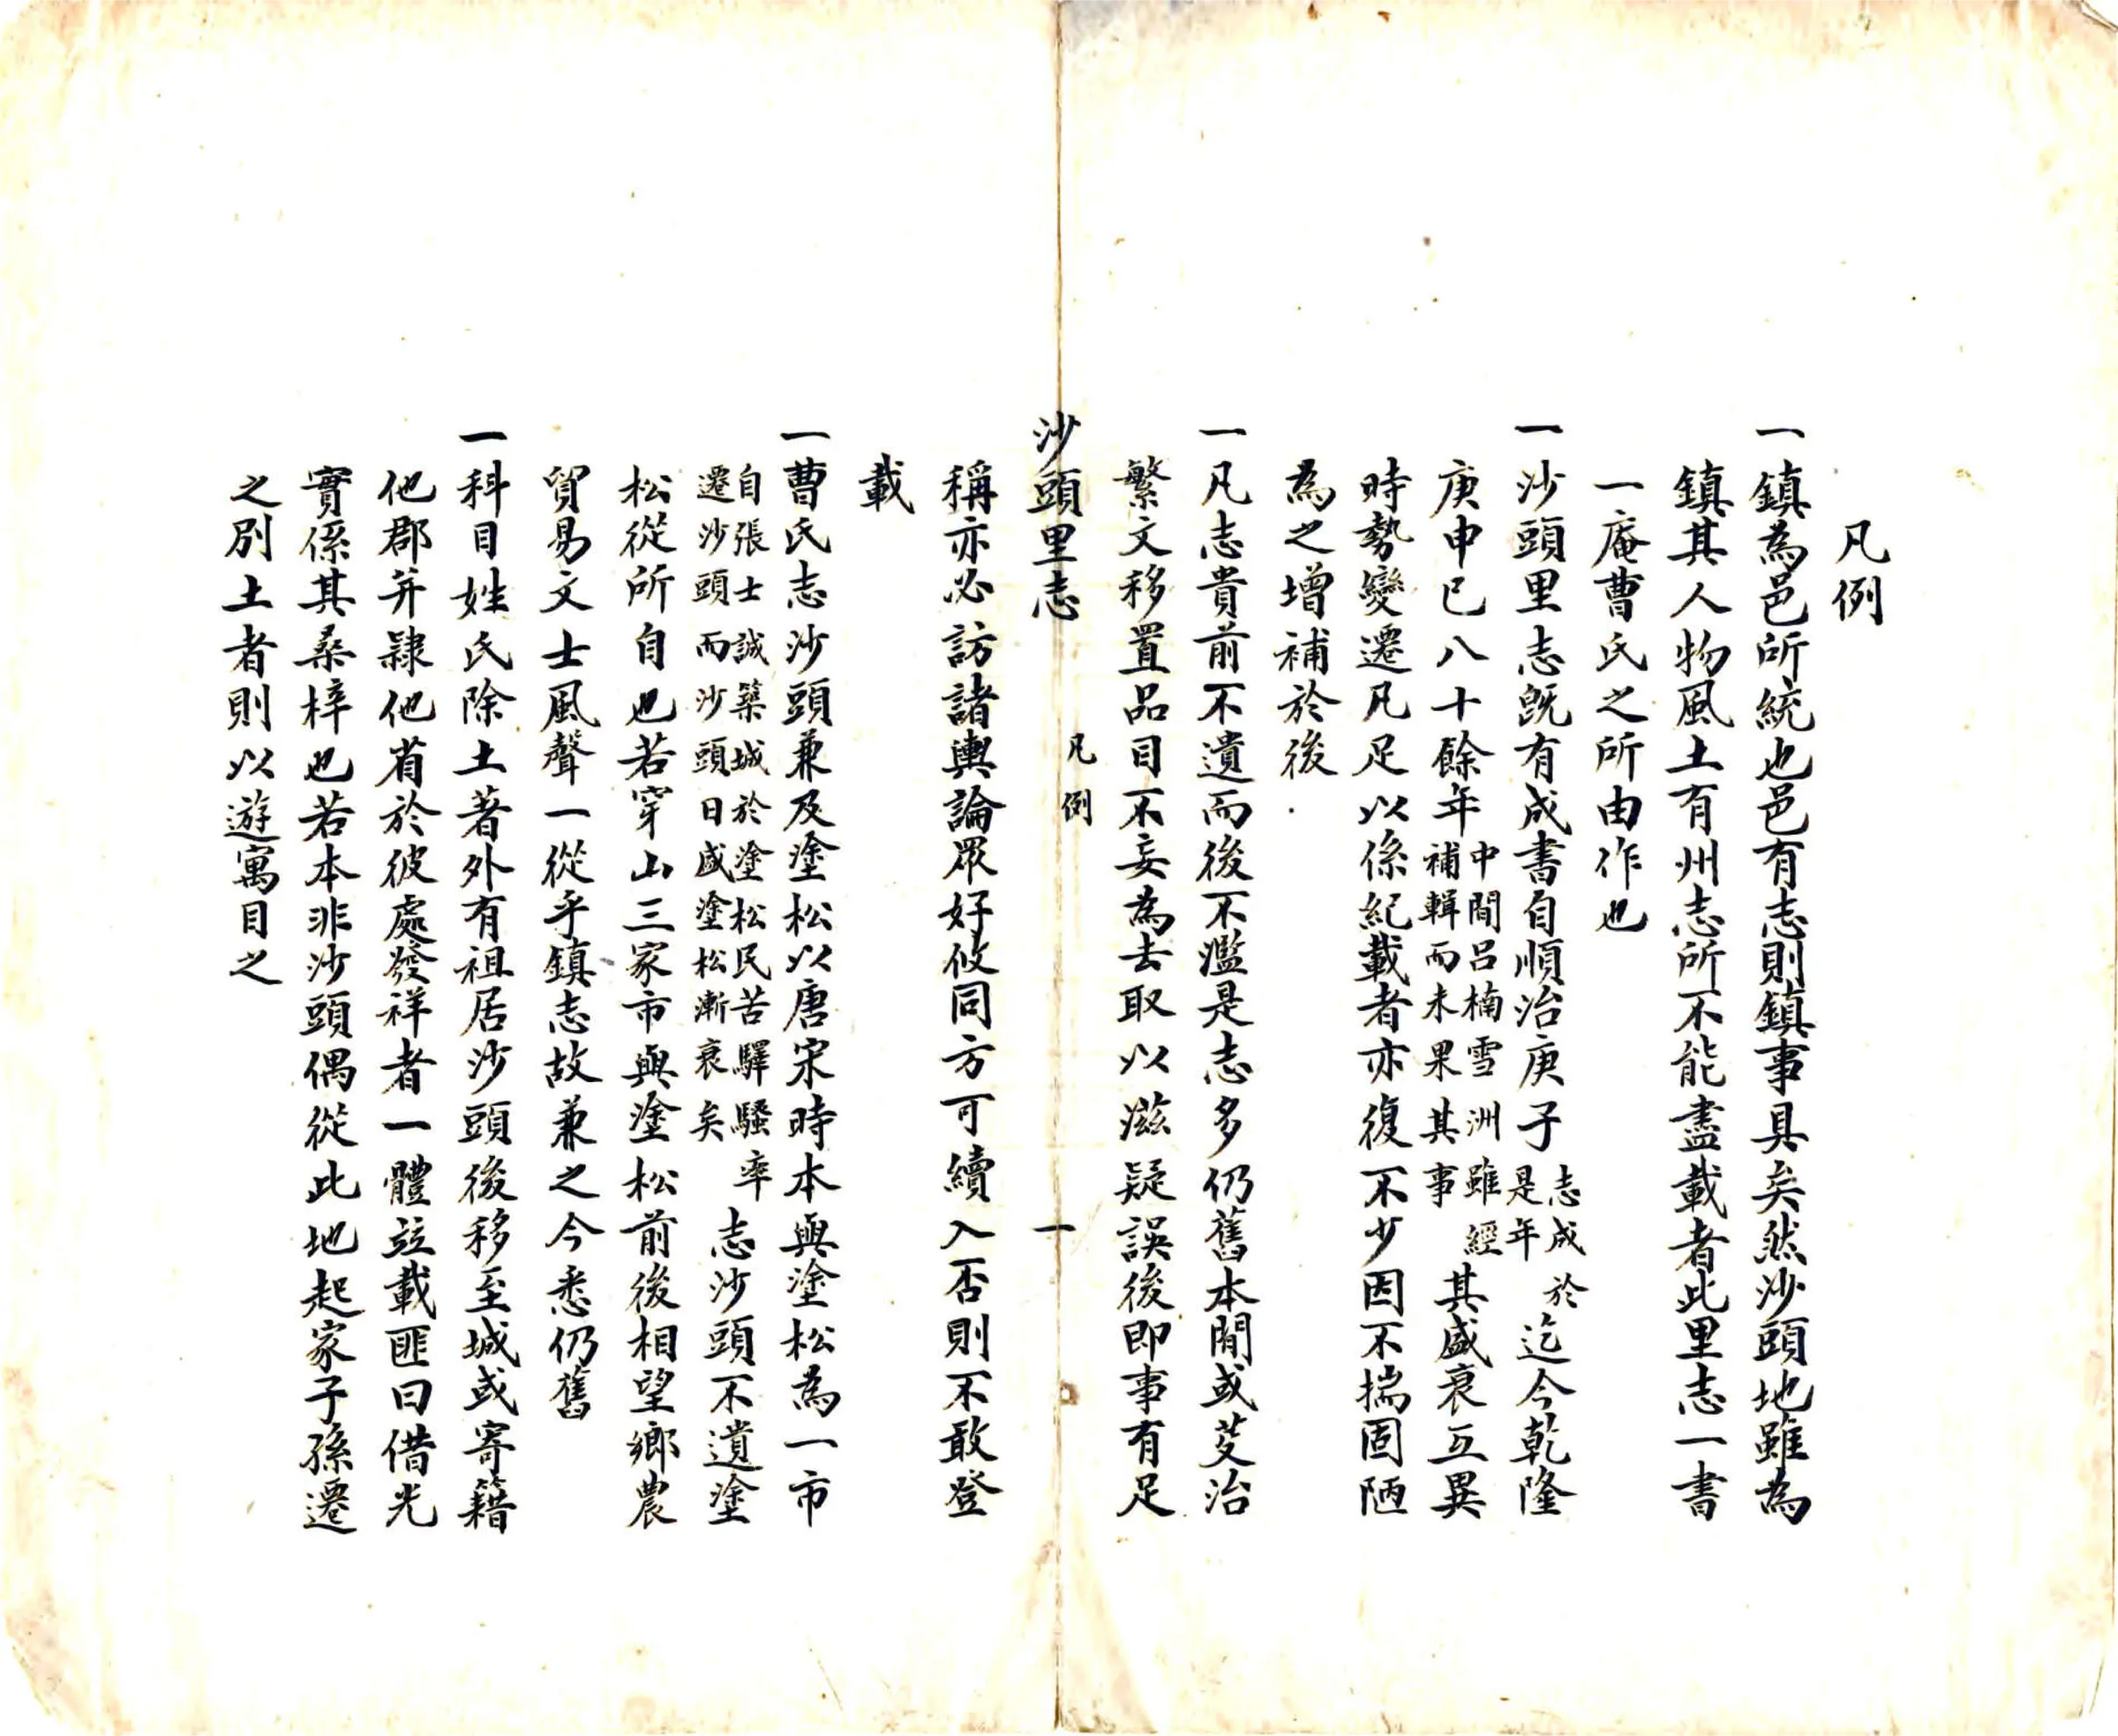 凡例
一鎮為邑所統也邑有志則鎮事具矣然沙頭地雖為
鎮其人物風土有州志所不能盡載者此里志一書
一庵曹氏之所由作也
一沙頭里志旣有成書自順治庚子志成於是年迄今乾隆
庚申已八十餘年中間呂楠雪洲雖經補輯而未果其事其盛衰互異
時勢變遷凡足以係紀載者亦復不少因不揣固陋
為之增補於後
一凡志貴前不遺而後不濫是志多仍舊本間或芟治
繁文移置品目不妄為去取以滋疑誤後即事有足
沙頭里志 凡例 一
稱亦必訪諸輿論眾好攸同方可續入否則不敢登
載
一曹氏志沙頭兼及塗松以唐宋時本與塗松為一市
自張士誠築城於塗松民苦驛騷率遷沙頭而沙頭日盛塗松漸衰矣志沙頭不遺塗
松從所自也若穿山三家市與塗松前後相望鄉農
貿易文士風聲一從乎鎮志故兼之今悉仍舊
一科目姓氏除土著外有祖居沙頭後移至城或寄籍
他郡并隸他省於彼處發祥者一體竝載匪曰借光
實係其桑梓也若本非沙頭偶從此地起家子孫遷
之別土者則以遊寓目之